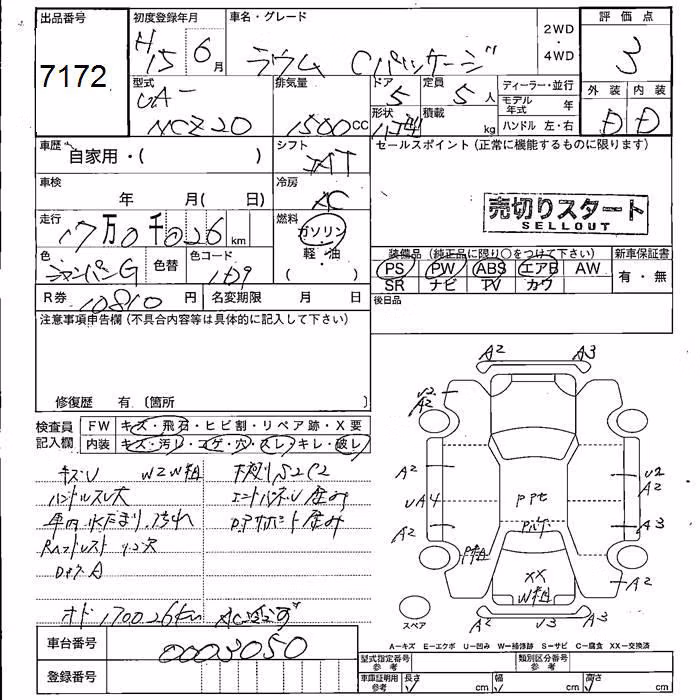 出品番号
7172
初度登録年月
H15 6月
車名・グレード
ラウム Cパッケージ
2WD
・
4WD
評価点
3
型式
UA-
NCZ20
排気量
1500cc
ドア
5
定員
5人
形状
積載
kg
ディーラー・並行
モデル年式 年
ハンドル 左・右
外装
D
内装
D
車歴
自家用・( )
シフト
車検
年 月( 日)
冷房
AC
走行
17万0千026km
燃料
ガソリン
軽・油
( )
色
シャンパンG
色替
色コード
R券 10810円
名変期限 月 日
セールスポイント(正常に機能するものに限ります)
売切りスタート
SELLOUT
装備品(純正品に限り○をつけて下さい)
新車保証書
PS PW ABS エアB AW
SR ナビ TV カワ
有・無
後日品
注意事項申告欄(不具合内容等は具体的に記入して下さい)
修復歴 有〔箇所 〕
検査員
記入欄
FW キズ・飛石・ヒビ割・リペア跡・X要
内装 キズ・汚れ・コゲ・穴・スレ・キレ・破レ
キズU W2W粗
ハンドルスレ大
オド 170026km
車台番号
0003050
登録番号
A2 A3
U2
A2
A2 U2
A2
UA4
PPt
A2 A3
XX
W粗
A2
A2 U3 A3
スペア
A−キズ E−エクボ U−凹み W−補修跡 S−サビ C−腐食 XX−交換済
型式指定番号
参考
類別区分番号
参考
車庫証明用
参考
長さ cm
幅 cm
高さ cm